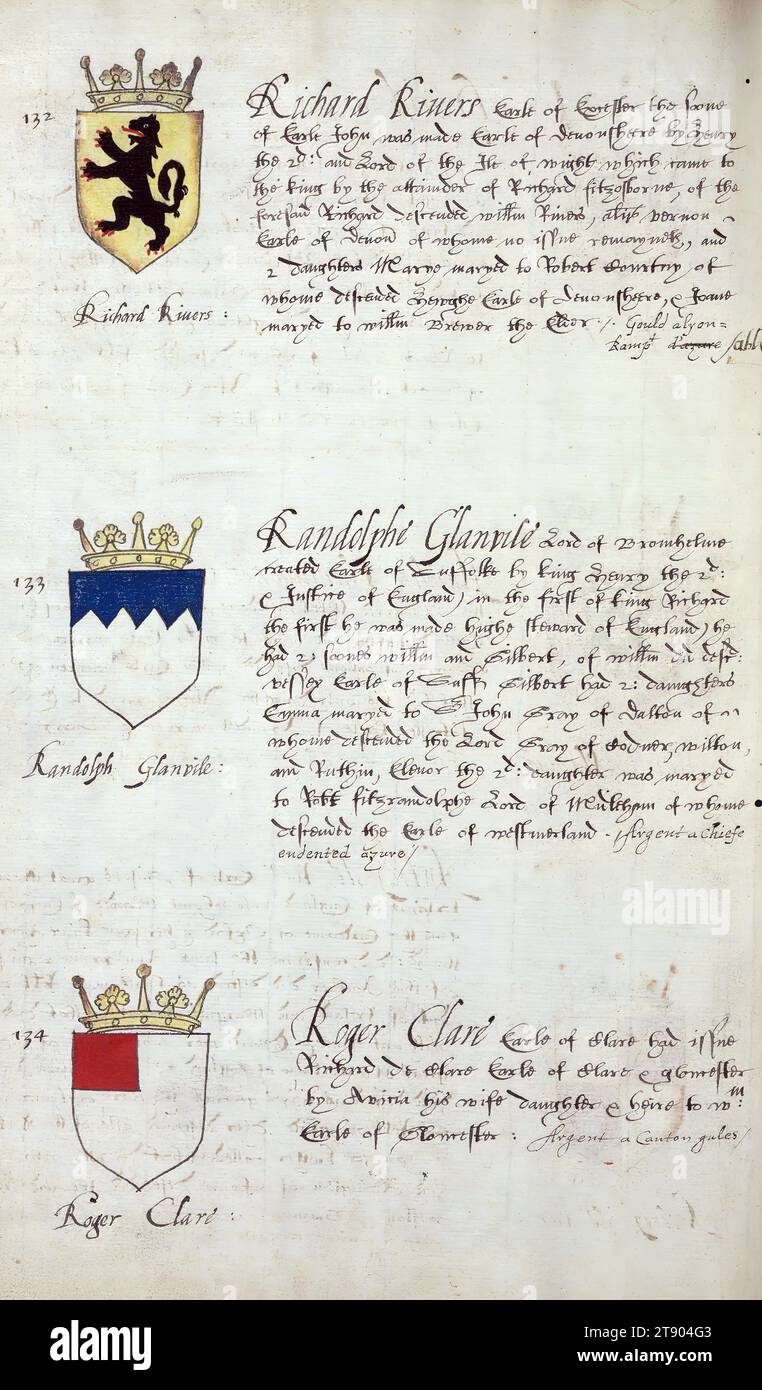 132
Richard Rivers Earle of Excester the sonne
of Earle John was made Earle of Devonsheere by Henry
the 2d: and Lord of the Ile of wight which came to
the king by the attainder of Richard fitzosborne, of the
foresaid Richard descended willm Rivers, alijs vernon
Earle of Devon of whome no issue remayneth, and
2 daughters Marye maryed to Robert Courtny of
whome descended Hewghe Earle of Devonsheere, & Joane
maryed to willm Brewer the Elder /. Gould a lyon=
Ramp't d'azure sabl
Richard Rivers:
133
Randolphe Glanvile Lord of Bromholme
created Earle of Suffolke by king Henry the 2d:
& Justice of England, in the first of king Richard
the first he was made highe steward of England, he
had 2: sonnes willm and Gilbert, of willm did desc:
vessey Earle of Suff: Gilbert had 2: daughters
Emma maryed to Sr John Gray of Dalton of
whome descended the Lord Gray of Codner, wilton,
and Ruthin, Elenor the 2d: daughter was maryed
to Robt fitzrandolphe Lord of of whome
descended the Earle of westmerland . Argent a Chiefe
endented azure /
Randolph Glanvile:
134
Roger Clare Earle of Clare had issue
Richard De Clare Earle of Clare & glocester
by Avicia his wife daughter & heire to wm:
Earle of Glocester: Argent a Canton gules /
Roger Clare:
alamy
alamy
alamy
alamy
Image ID: 2T904G3
www.alamy.com